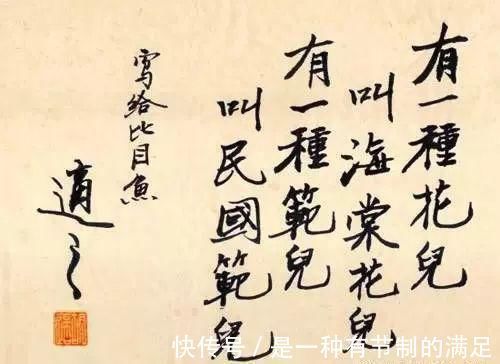 有一種花兒
叫海棠花兒
有一種範兒
叫民國範兒
寫給比目魚
適之
快传号/是一种有节制的满足